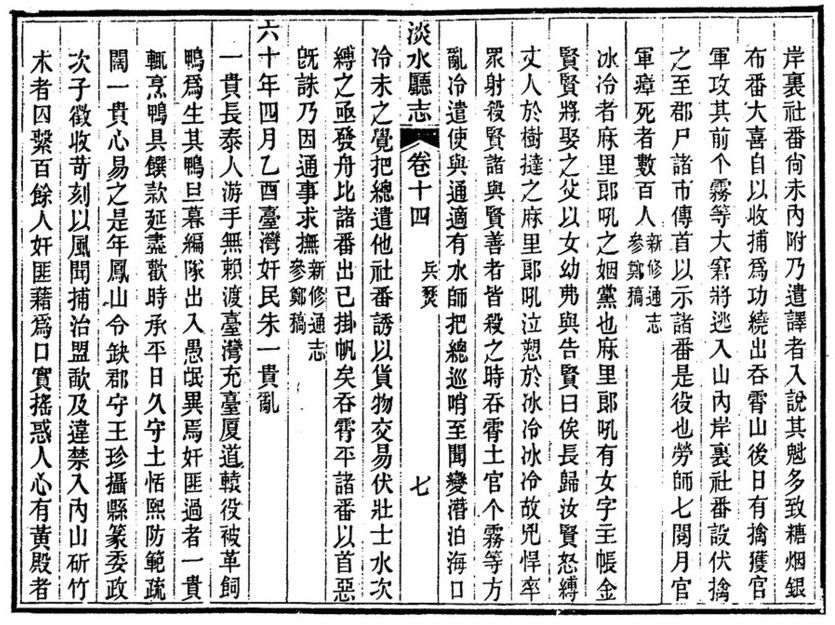 岸裏社番尚未內附乃遣譯者入說其魁多致糖烟銀
布番大喜自以收捕爲功繞出吞霄山後日有擒獲官
軍攻其前个霧等大窘將逃入山內岸裏社番設伏擒
之至郡尸諸市傳首以示諸番是役也勞師七閱月官
軍瘴死者數百人新修通志參鄭稿
冰冷者麻里郎吼之姻黨也麻里郎吼有女字主帳金
賢賢將娶之父以女幼弗與告賢曰俟長歸汝賢怒縛
丈人於樹撻之麻里郎吼泣愬於冰冷冰冷故兇悍率
眾射殺賢諸與賢善者皆殺之時吞霄土官个霧等方
亂冷遣使與通適有水師把總巡哨至聞變潛泊海口
淡水廳志 卷十四 兵燹 七
冷未之覺把總遣他社番誘以貨物交易伏壯士水次
縛之亟發舟比諸番出已掛帆矣吞霄平諸番以首惡
旣誅乃因通事求撫新修通志參鄭稿
六十年四月乙酉臺灣奸民朱一貴亂
一貴長泰人游手無賴渡臺灣充臺厦道轅役被革飼
鴨爲生其鴨旦暮編隊出入愚氓異焉奸匪過者一貴
輒烹鴨具饌款延盡歡時承平日久守土恬熙防範疏
闊一貴心易之是年鳳山令缺郡守王珍攝縣篆委政
次子徵收苛刻以風聞捕治盟歃及違禁入內山斫竹
木者囚繫百餘人奸匪藉爲口實搖惑人心有黃殿者